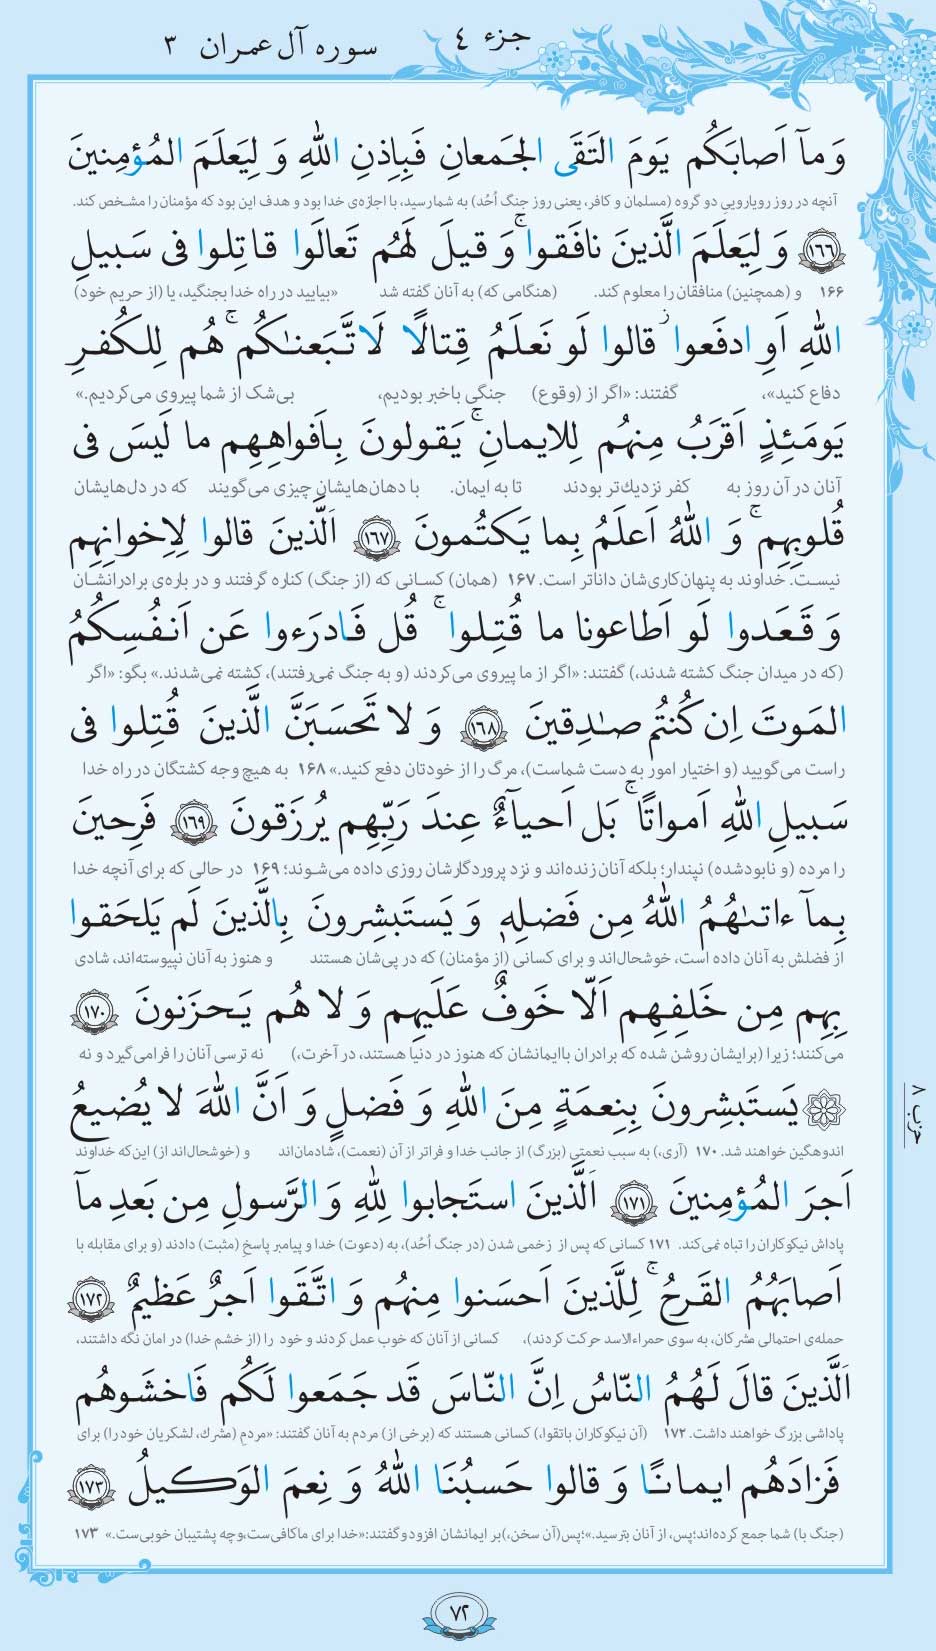 جزء ٤
سوره آل عمران ٣
وَ مآ اَصابَكُم يَومَ التَقَى الجَمعانِ فَبِاِذنِ اللهِ وَ لِيَعلَمَ المُؤمِنينَ
آنچه در روز رویاروییِ دو گروه (مسلمان و کافر، یعنی روز جنگ اُحُد) به شما رسید، با اجازه‌ی خدا بود و هدف این بود که مؤمنان را مشخص کند.
﴿١٦٦﴾ وَ لِيَعلَمَ الَّذينَ نافَقوا ۚ وَ قيلَ لَهُم تَعالَوا قاتِلوا فى سَبيلِ
۱۶۶ و (همچنین) منافقان را معلوم کند. (هنگامی که) به آنان گفته شد «بیایید در راه خدا بجنگید، یا (از حریم خود)
اللهِ اَوِ ادفَعوا ۖ قالوا لَو نَعلَمُ قِتالًا لَاتَّبَعنـٰكُم ۗ هُم لِلكُفرِ
دفاع کنید»، گفتند: «اگر از (وقوع) جنگی باخبر بودیم، بی‌شک از شما پیروی می‌کردیم.»
يَومَئِذٍ اَقرَبُ مِنهُم لِلايمانِ ۚ يَقولونَ بِاَفواهِهِم ما لَيسَ فى
آنان در آن روز به کفر نزدیك‌تر بودند تا به ایمان. با دهان‌هایشان چیزی می‌گویند که در دل‌هایشان
قُلوبِهِم ۗ وَ اللهُ اَعلَمُ بِما يَكتُمونَ ﴿١٦٧﴾ اَلَّذينَ قالوا لِاِخوانِهِم
نیست. خداوند به پنهان‌کاری‌شان داناتر است. ۱۶۷ (همان) کسانی که (از جنگ) کناره گرفتند و در باره‌ی برادرانشان
وَ قَعَدوا لَو اَطاعونا ما قُتِلوا ۗ قُل فَادرَءوا عَن اَنفُسِكُمُ
(که در میدان جنگ کشته شدند،) گفتند: «اگر از ما پیروی می‌کردند (و به جنگ نمی‌رفتند)، کشته نمی‌شدند.» بگو: «اگر
المَوتَ اِن كُنتُم صـٰدِقينَ ﴿١٦٨﴾ وَ لا تَحسَبَنَّ الَّذينَ قُتِلوا فى
راست می‌گویید (و اختیار امور به دست شماست)، مرگ را از خودتان دفع کنید.» ۱۶۸ به هیچ وجه کشتگان در راه خدا
سَبيلِ اللهِ اَمواتًا ۚ بَل اَحيآءٌ عِندَ رَبِّهِم يُرزَقونَ ﴿١٦٩﴾ فَرِحينَ
را مرده (و نابودشده) نپندار؛ بلکه آنان زنده‌اند و نزد پروردگارشان روزی داده می‌شوند؛ ۱۶۹ در حالی که برای آنچه خدا
بِمآ ءاتىٰهُمُ اللهُ مِن فَضلِهٖ وَ يَستَبشِرونَ بِالَّذينَ لَم يَلحَقوا
از فضلش به آنان داده است، خوشحال‌اند و برای کسانی (از مؤمنان) که در پی‌شان هستند و هنوز به آنان نپیوسته‌اند، شادی
بِهِم مِن خَلفِهِم اَلّا خَوفٌ عَلَيهِم وَ لا هُم يَحزَنونَ ﴿١٧٠﴾
می‌کنند؛ زیرا (برایشان روشن شده که برادران باایمانشان که هنوز در دنیا هستند، در آخرت،) نه ترسی آنان را فرامی‌گیرد و نه
يَستَبشِرونَ بِنِعمَةٍ مِنَ اللهِ وَ فَضلٍ وَ اَنَّ اللهَ لا يُضيعُ
اندوهگین خواهند شد. ۱۷۰ (آری،) به سبب نعمتی (بزرگ) از جانب خدا و فراتر از آن (نعمت)، شادمان‌اند و (خوشحال‌اند از) این‌که خداوند
اَجرَ المُؤمِنينَ ﴿١٧١﴾ اَلَّذينَ استَجابوا لِلّٰهِ وَ الرَّسولِ مِن بَعدِ مآ
پاداش نیکوکاران را تباه نمی‌کند. ۱۷۱ کسانی که پس از زخمی شدن (در جنگ اُحُد)، به (دعوت) خدا و پیامبر پاسخِ (مثبت) دادند (و برای مقابله با
اَصابَهُمُ القَرحُ ۚ لِلَّذينَ اَحسَنوا مِنهُم وَ اتَّقَوا اَجرٌ عَظيمٌ ﴿١٧٢﴾
حمله‌ی احتمالی مشرکان، به سوی حمراءالاسد حرکت کردند)، کسانی از آنان که خوب عمل کردند و خود را (از خشم خدا) در امان نگه داشتند،
اَلَّذينَ قالَ لَهُمُ النّاسُ اِنَّ النّاسَ قَد جَمَعوا لَكُم فَاخشَوهُم
پاداشی بزرگ خواهند داشت. ۱۷۲ (آن نیکوکاران باتقوا،) کسانی هستند که (برخی از) مردم به آنان گفتند: «مردمِ (مشرك، لشکریان خود را) برای
فَزادَهُم ايمانًا وَ قالوا حَسبُنَا اللهُ وَ نِعمَ الوَكيلُ ﴿١٧٣﴾
(جنگ با) شما جمع کرده‌اند؛ پس، از آنان بترسید.»؛ پس (آن سخن،) بر ایمانشان افزود و گفتند: «خدا برای ما کافی‌ست، و چه پشتیبان خوبی‌ست.» ۱۷۳
حزب ۸
٧٢